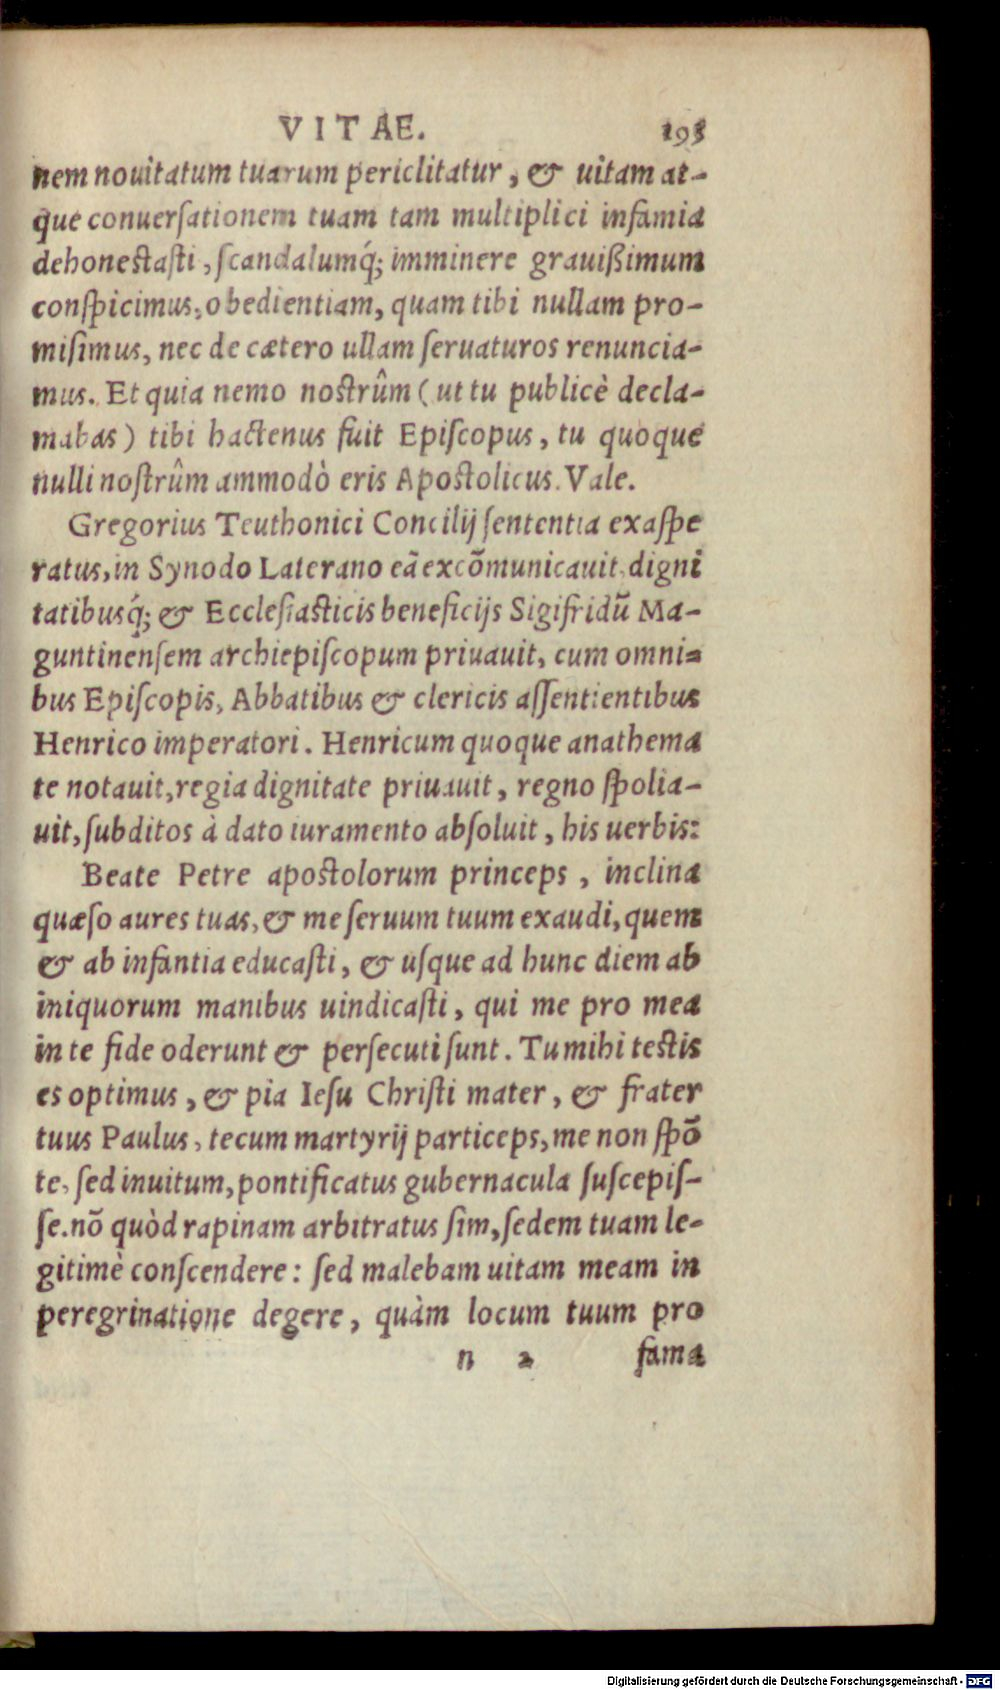 VITAE. 195
nem nouitatum tuarum periclitatur, & uitam at-
que conuersationem tuam tam multiplici infamia
dehonestasti, scandalumq́; imminere grauißimum
conspicimus, obedientiam, quam tibi nullam pro-
misimus, nec de cætero ullam seruaturos renuncia-
mus. Et quia nemo nostrûm (ut tu publicè decla-
mabas) tibi hactenus fuit Episcopus, tu quoque
nulli nostrûm ammodò eris Apostolicus. Vale.
Gregorius Teuthonici Concilij sententia exaspe
ratus, in Synodo Laterano eā excōmunicauit, digni
tatibusq́; & Ecclesiasticis beneficijs Sigifridū Ma-
guntinensem archiepiscopum priuauit, cum omni-
bus Episcopis, Abbatibus & clericis assentientibus
Henrico imperatori. Henricum quoque anathema
te notauit, regia dignitate priuauit, regno spolia-
uit, subditos à dato iuramento absoluit, his uerbis:
Beate Petre apostolorum princeps, inclina
quæso aures tuas, & me seruum tuum exaudi, quem
& ab infantia educasti, & usque ad hunc diem ab
iniquorum manibus uindicasti, qui me pro mea
in te fide oderunt & persecuti sunt. Tu mihi testis
es optimus, & pia Iesu Christi mater, & frater
tuus Paulus, tecum martyrij particeps, me non spō
te, sed inuitum, pontificatus gubernacula suscepis-
se. nō quòd rapinam arbitratus sim, sedem tuam le-
gitimè conscendere: sed malebam uitam meam in
peregrinatione degere, quàm locum tuum pro
n 2 fama
Digitalisierung gefördert durch die Deutsche Forschungsgemeinschaft - DFG